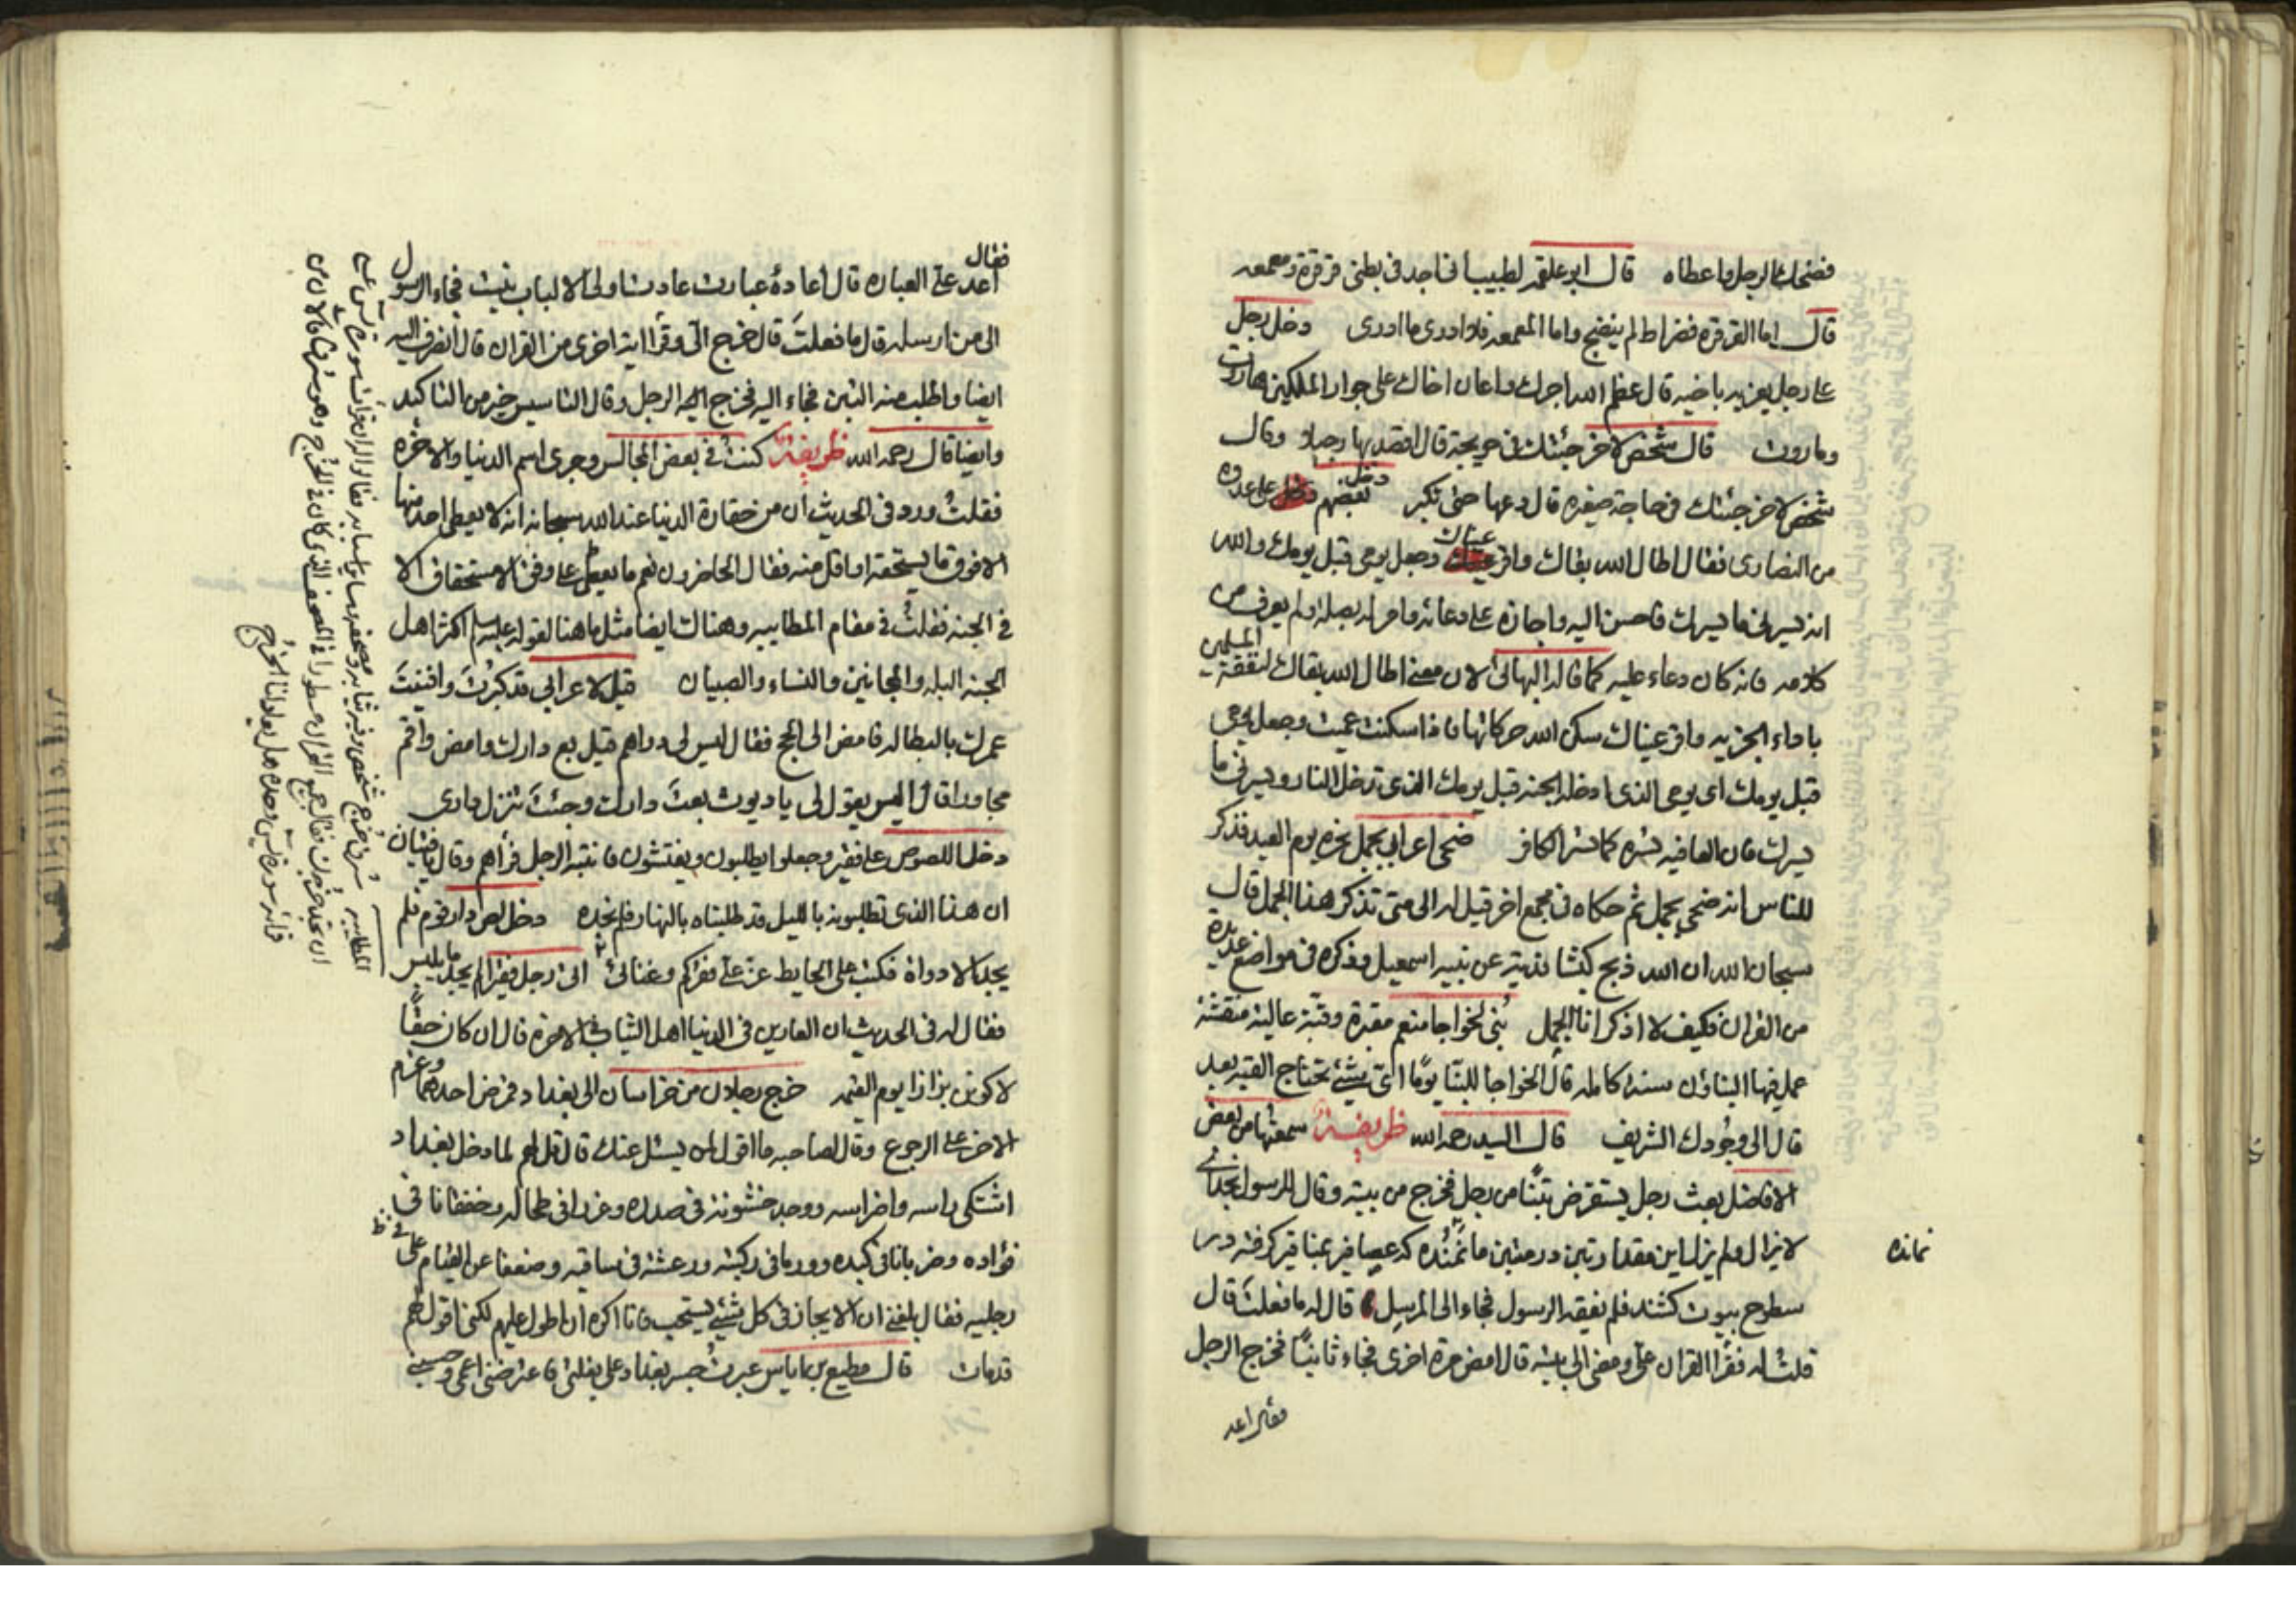 فضحك الرجل واعطاه قال ابو علقمه لطبيب انى اجد فى بطنى قرقرة ومعمعه
قال اما القرقره فضراط لم ينضج واما المعمعه فلا ادرى ما ادرى دخل رجل
على رجل يعزيه باخيه قال عظم الله اجرك واعان اخاك على جواب الملكين هاروت
وماروت قال شخص لاخر جئتك فى حويجة قال اقصد بها رجيلا وقال
شخص لاخر جئتك فى حاجة صغيره قال دعها حتى تكبر دخل بعضهم على عدوه
من النصارى فقال اطال الله بقاك واقر عيناك وجعل يومى قبل يومك والله
انه يسرنى ما يسرك فاحسن اليه واجازه على دعائه وامر له بصله ولم يعرف من
كلامه فانه كان دعاء عليه كما قاله البهائى لان معنى اطال الله بقاك لمنفعة المسلمين
باداء الجزيه واقر عيناك سكن الله حركاتها فاذا سكنت عميت وجعل يومى
قبل يومك اى يومى الذى ادخله الجنه قبل يومك الذى تدخل النار ويسرنى ما
يسرك فان العافيه تسره كما تسر الكافر ضحى اعرابى بجمل نحره يوم العيد فذكر
للناس انه ضحى بجمل ثم حكاه فى مجمع اخر قيل له الى متى تذكر هذا الجمل قال
سبحان الله ان الله ذبح كبشا فدية عن نبيه اسمعيل وذكره فى مواضع عديدة
من القران فكيف لا اذكر انا الجمل بنى لخواجا منعم مقبرة وقبة عالية منقشة
عمل فيها البناؤن سنة كامله قال الخواجا للبنا يوما اى شيئ تحتاج القبه بعد
قال الى وجودك الشريف قال السيد رحمه الله ظريفة سمعتها من بعض
الافاضل بعث رجل يستقرض تبنا من رجل فخرج من بيته وقال للرسول بخداى
لايزال ولم يزل اين مقدار تبن در متبن ما نمانده كه عصافير بمناقير كرفته در
نمانده
سطوح بيوت كشند فلم يفقه الرسول فجاء الى المرسل قال له ما فعلت قال
قلت له فقرا القران علىّ ومضى الى بيته قال امض مرة اخرى فجاء ثانيا فخرج الرجل
فقال اعد
فقال
اعد علىّ العباره قال اعادۀ عبارت عادت اولى الالباب نيست فجاء الرسول
الى من ارسله قال ما فعلت قال خرج الىّ وقرا اية اخرى من القران قال انصرف اليه
ايضا واطلب منه التبن فجاء اليه فخرج اليه الرجل وقال التاسيس خير من التاكيد
وايضا قال رحمه الله ظريفة كنت فى بعض المجالس وجرى اسم الدنيا والاخره
فقلت ورد فى الحديث ان من حقارة الدنيا عند الله سبحانه انه لا يعطى احد منها
الا فوق ما يستحقه او اقل منه فقال الحاضرون نعم ما يعطى على وفق الاستحقاق الا
فى الجنه فقلت فى مقام المطايبه وهناك ايضا مثل ما هنا لقوله عليه السلم اكثر اهل
الجنه البله والمجانين والنساء والصبيان قيل لاعرابى قد كبرت وافنيت
عمرك بالبطاله فامض الى الحج فقال ليس لى دراهم قيل بع دارك وامض واقم
مجاورا قال اليس يقول لى يا ديوث بعت دارك وجئت تنزل دارى
دخل اللصوص على فقير وجعلوا يطلبون ويفتشون فانتبه الرجل فرأهم وقال يا فتيان
ان هذا الذى تطلبونه بالليل قد طلبناه بالنهار فلم نجده دخل لص دار قوم فلم
يجد الا دواة فكتب على الحايط عزّ علىّ فقركم وغنائى اتى رجل فقيرا لم يجد ما يلبس
فقال له فى الحديث ان العارين فى الدنيا اهل الثياب فى الاخرة قال ان كان حقا
لاكونن بزازا يوم القيمه خرج رجلان من خراسان الى بغداد فمرض احدهما وعزم
الاخر على الرجوع وقال لصاحبه ما اقول لمن يسئل عنك قال قل لهم لما دخل بغداد
اشتكى راسه واضراسه ووجد خشونة فى صدره وغرزا فى طحاله وخفقانا فى
فؤاده وضربانا فى كبده وورما فى ركبته ورعشة فى ساقيه وضعفا عن القيام على
رجليه فقال بلغنى ان الايجاز فى كل شيئ يستحب فانا اكره ان اطول عليهم لكنى اقول لهم
قد مات قال مطيع بن اياس عبرت جسر بغداد على بغلتى فاعترضنى اعمى وحسبنى
المطايبه سرق خرج شخص وفيه ثيابه ومصحفه